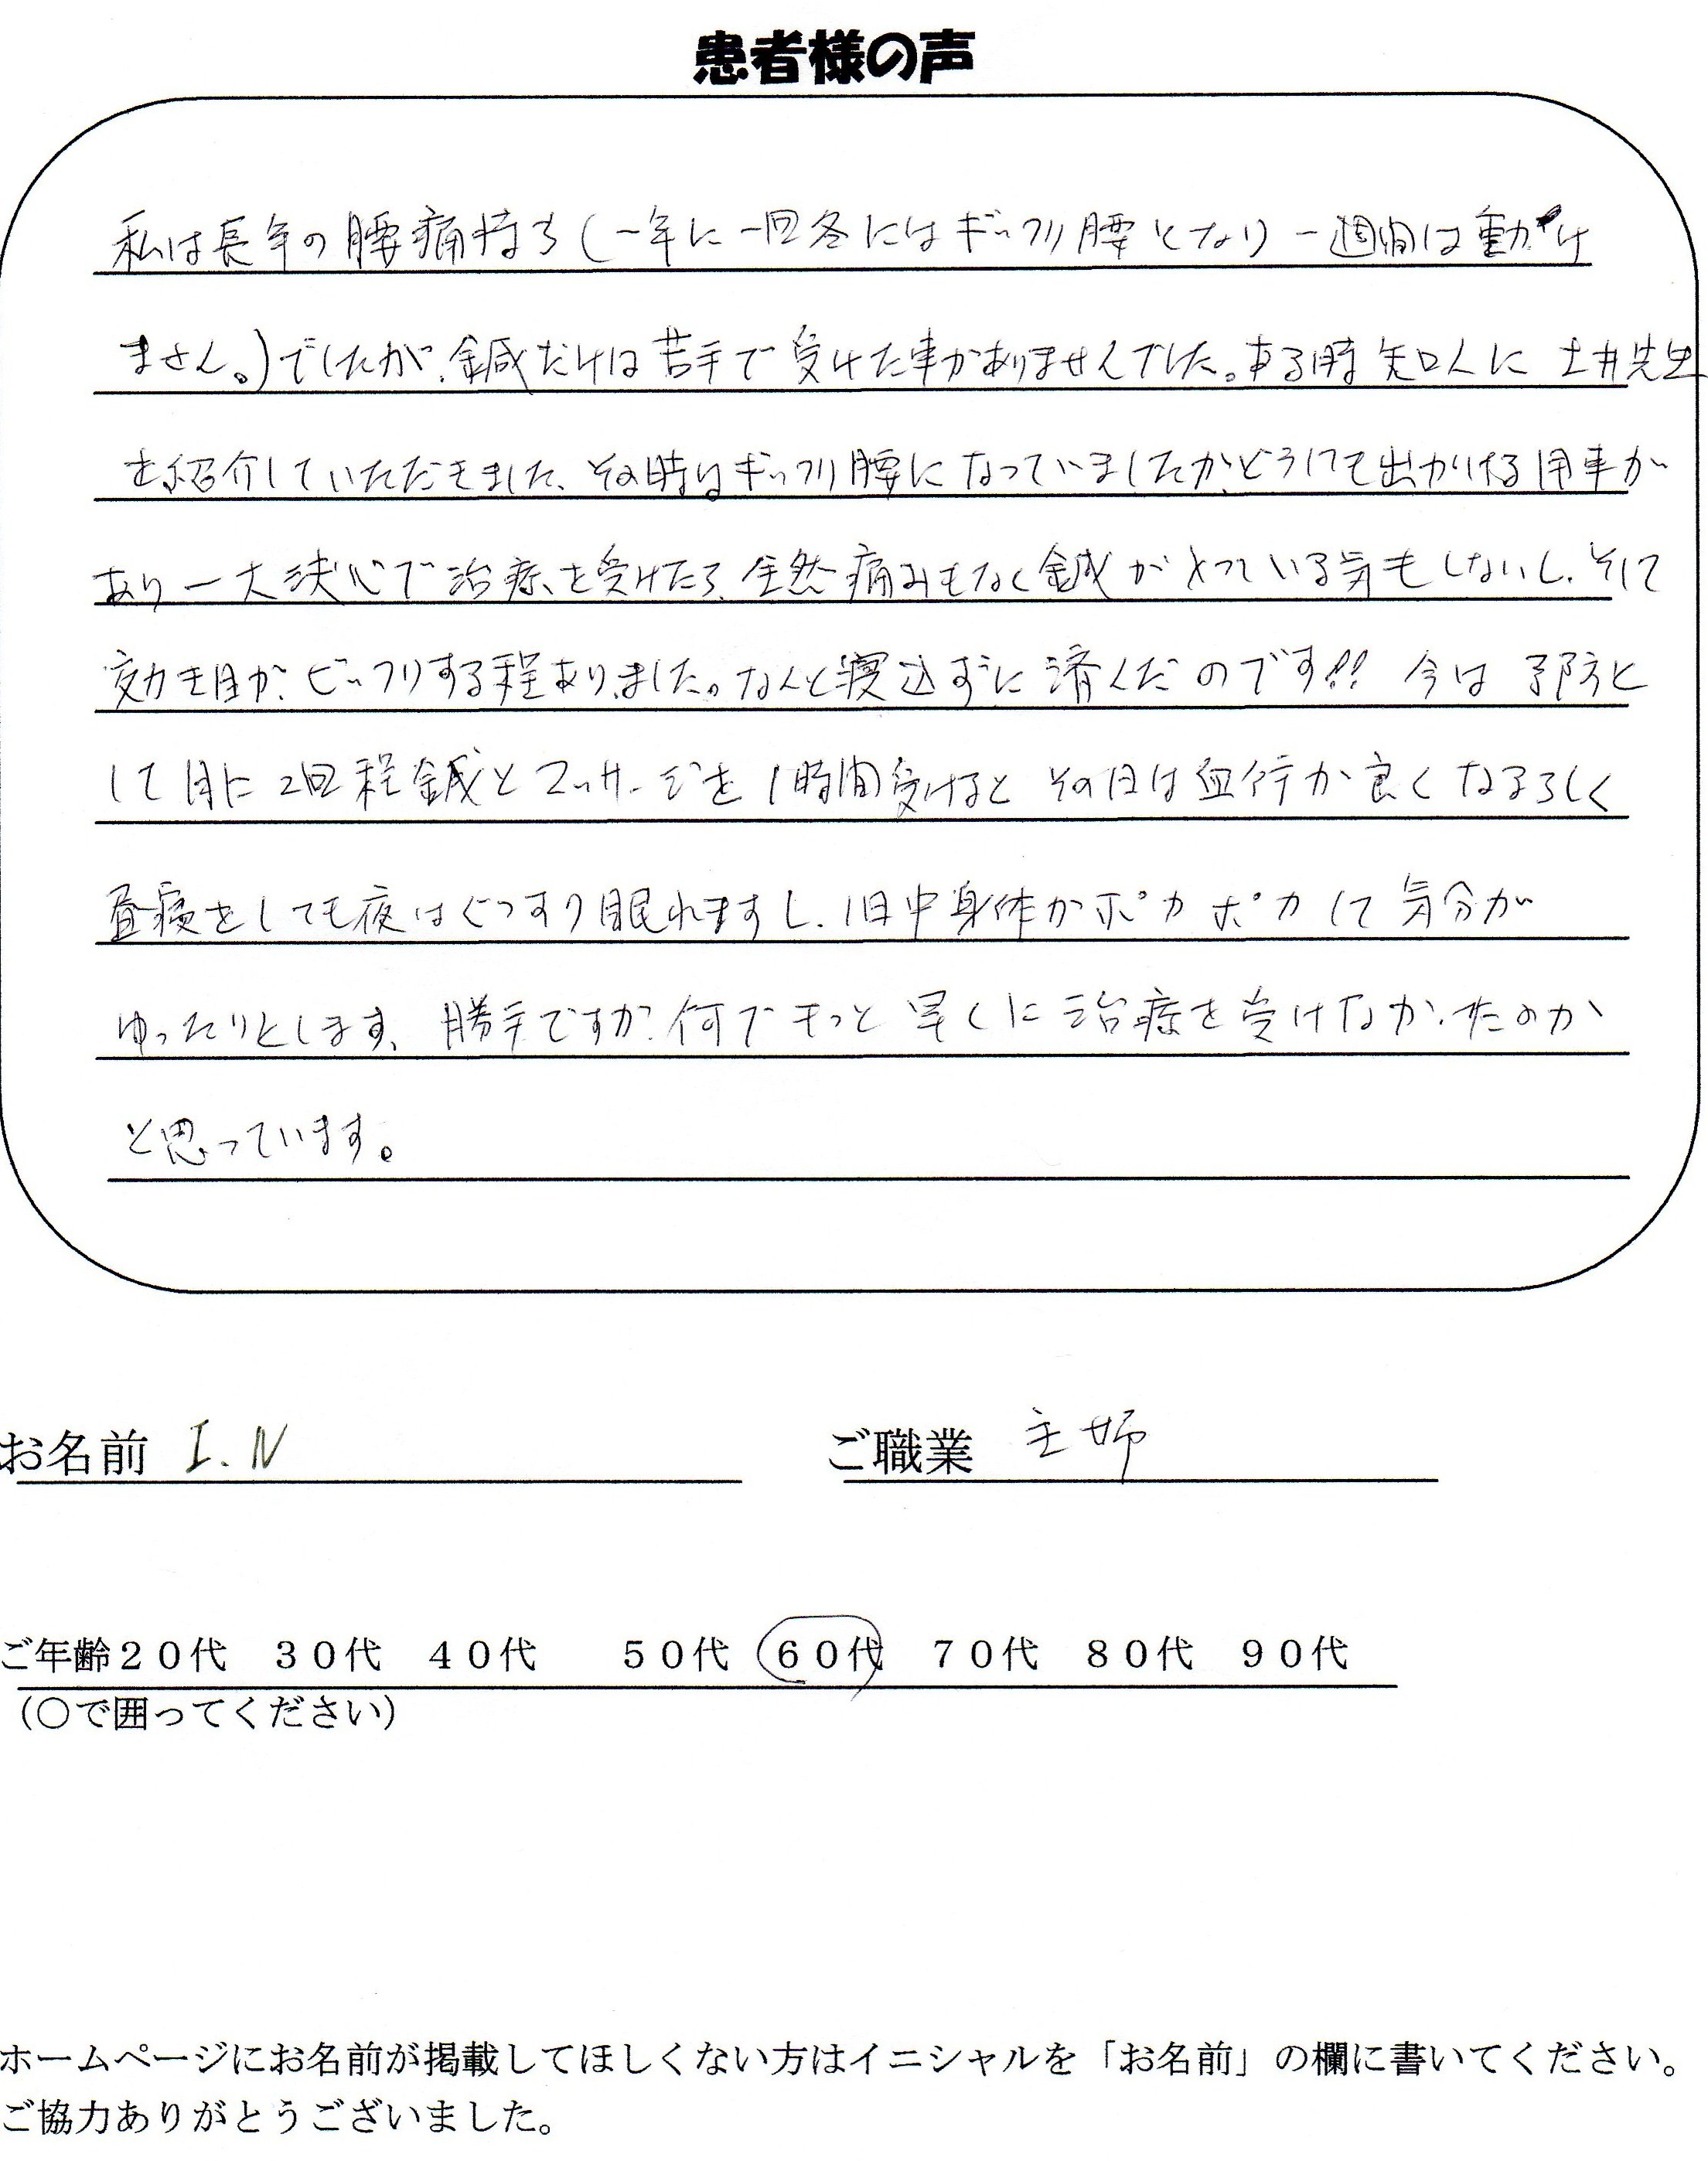 患者様の声
私は長年の腰痛持ち(一年に一回冬にはギックリ腰となり一週間は動け
ません。)でしたが、鍼だけは苦手で受けた事がありませんでした。ある時知人に土井先生
を紹介していただきました、その時はギックリ腰になっていましたが、どうしても出かける用事が
あり一大決心で治療を受けたら、全然痛みもなく鍼がとっている気もしないし、そして
効き目が、ビックリする程ありました。なんと寝込ずに済んだのです!! 今は予防と
して月に2回程鍼とマッサージを1時間受けるとその日は血行が良くなるらしく
昼寝をしても夜はぐっすり眠れますし、1日中身体がポカポカして気分が
ゆったりとします、勝手ですが、何でもっと早くに治療を受けなかったのか
と思っています。
お名前 I.N ご職業 主婦
ご年齢20代 30代 40代 50代 60代 70代 80代 90代
(○で囲ってください)
ホームページにお名前が掲載してほしくない方はイニシャルを「お名前」の欄に書いてください。
ご協力ありがとうございました。